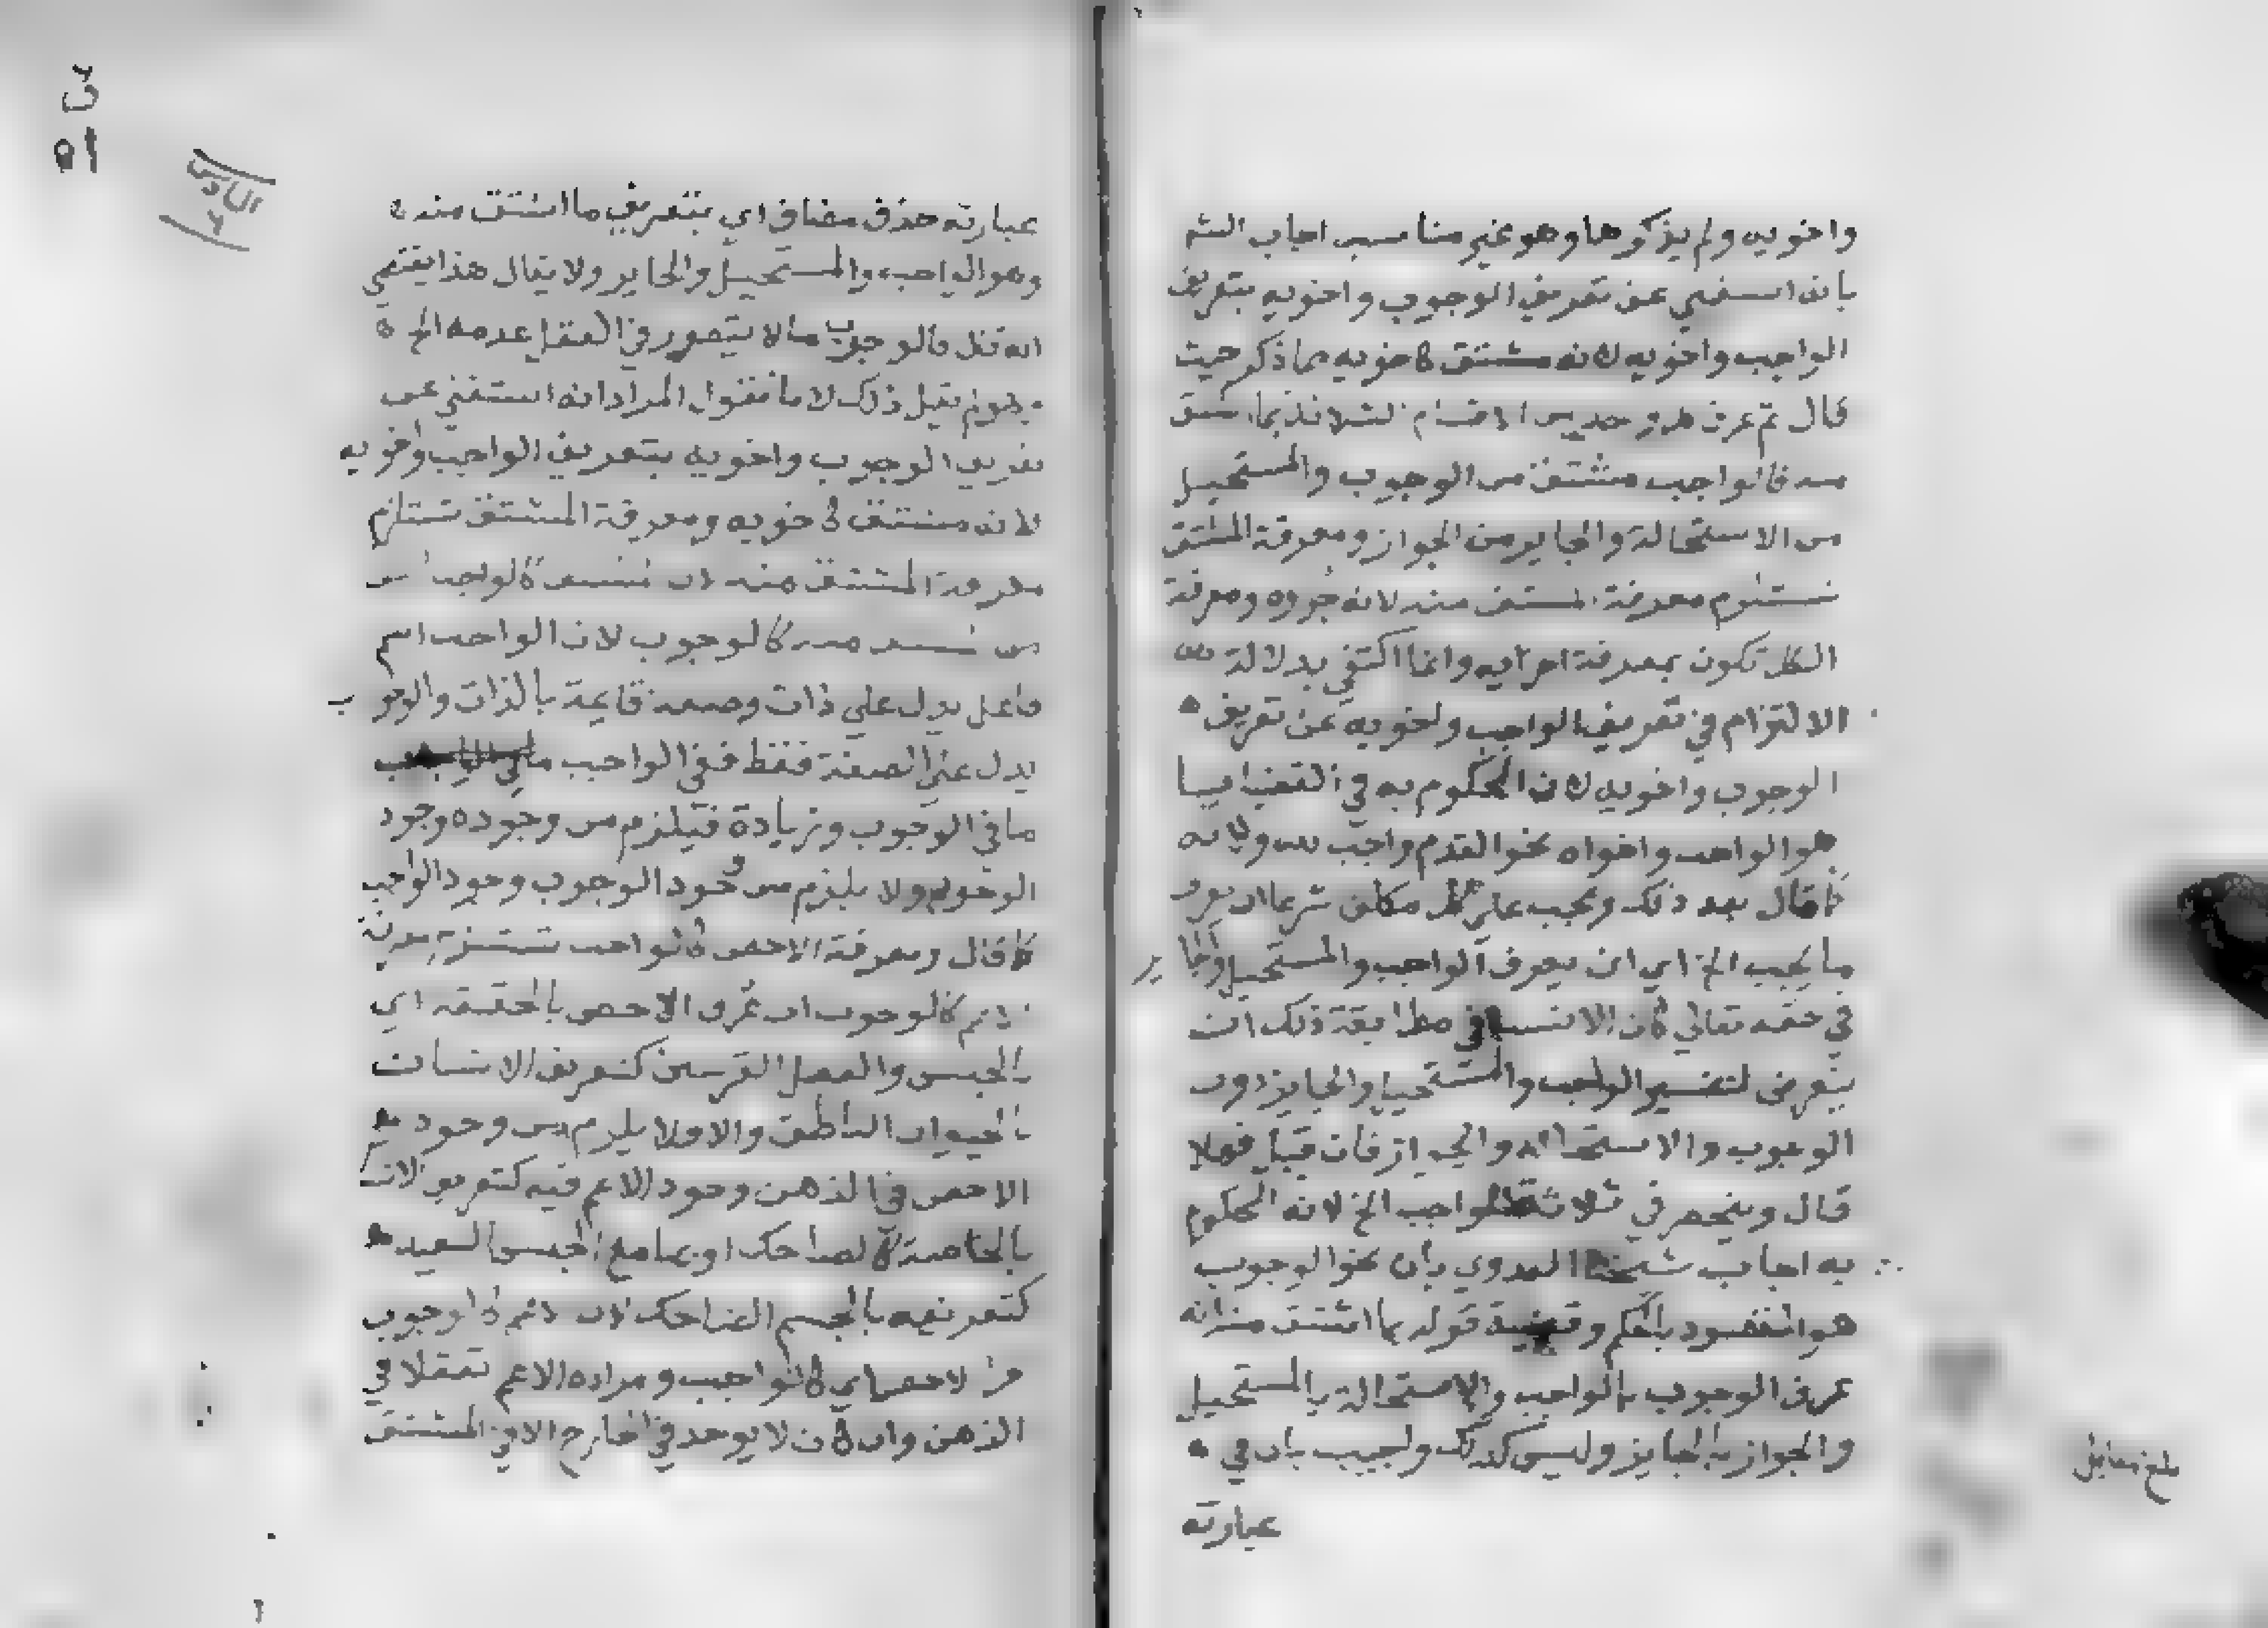 واخويه ولم يذكرها وهو غير مناسب اجاب الشه
بانه استغني عن تعريف الوجوب واخويه بتعريف
الواجب واخويه لانه مشتق كاخويه مما ذكر حيث
قال ثم عرف كل واحد من الاقسام الثلاثة بما اشتق
منه فالواجب مشتق من الوجوب والمستحيل
من الاستحالة والجايز من الجواز ومعرفة المشتق
تستلزم معرفة المشتق منه لانه جزوه ومعرفة
الكل تكون بمعرفة اجزايه وانما اكتفي بدلالة
الالتزام في تعريف الواجب واخويه عن تعريف
الوجوب واخويه لان المحكوم به في القضايا
هو الواجب واخواه نحو القدم واجب لله ولانه
قال بعد ذلك ويجب علي كل مكلف شرعا ان يعرف
ما يجب الخ اي ان يعرف الواجب والمستحيل والجايز
في حقه تعالي كان الانسب في مطابقة ذلك ان
يتعرض لتفسير الواجب والمستحيل والجايز دون
الوجوب والاستحالة والجواز فان قيل فهلا
قال وينحصر في ثلاثة الواجب الخ لانه المحكوم
به اجاب شيخنا العدوي بان نحو الوجوب
هو المقصود بالحكم وقضية قوله بما اشتق منه انه
عرف الوجوب بالواجب والاستحالة بالمستحيل
والجواز بالجايز وليس كذلك واجيب بان في
عبارته
بلغ مقابل
عبارته حذف مضاف اي بتعريف ما اشتق منه
وهو الواجب والمستحيل والجايز ولا يقال هذا يقتضي
انه قال فالوجوب ما لا يتصور في العقل عدمه الخ
وهو لم يقل ذلك لانا نقول المراد انه استغني عن
تعريف الوجوب واخويه بتعريف الواجب واخويه
لانه مشتق كاخويه ومعرفة المشتق تستلزم
معرفة المشتق منه لان كالواجب
كالوجوب لان الواجب اسم
فاعل يدل علي ذات وصفة قايمة بالذات والوجوب
يدل علي الصفة فقط ففي الواجب
ما في الوجوب وزيادة فيلزم من وجوده وجود
الوجوب ولا يلزم من وجود الوجوب وجود الواجب
قال ومعرفة الاخص كالواجب تستلزم معرفة
الاعم كالوجوب ان عرف الاخص بالحقيقة اي
بالجنس والفصل القريبين كتعريف الانسان
بالحيوان الناطق والا فلا يلزم من وجود
الاخص في الذهن وجود الاعم فيه كتعريف الانسان
بالخاصة كالضاحك او بها مع الجنس البعيد
كتعريفه بالجسم الضاحك لان الاعم كالوجوب
جزء الاخص اي كالواجب ومراده الاعم تعقلا في
الذهن وان كان لا يوجد في الخارج الا في المشتق